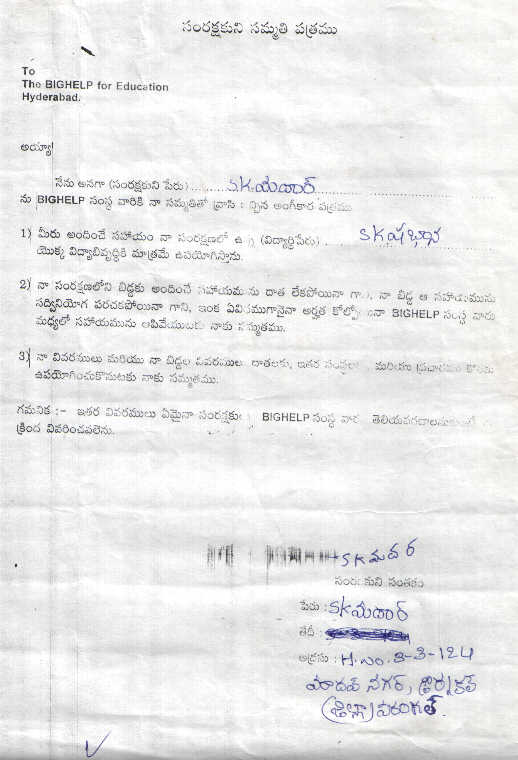 సంరక్షకుని సమ్మతి పత్రము
To
The BIGHELP for Education
Hyderabad.
అయ్యా!
నేను అనగా (సంరక్షకుని పేరు) SK మదార్
ను BIGHELP సంస్థ వారికి నా సమ్మతితో వ్రాసి ఇచ్చిన అంగీకార పత్రము
1) మీరు అందించే సహాయం నా సంరక్షణలో ఉ (విద్యార్థిపేరు) SK షభాన
యొక్క విద్యాభివృద్ధికి మాత్రమే ఉపయోగిస్తాను.
2) నా సంరక్షణలోని బిడ్డకు అందించే సహాయమును దాత లేకపోయినా గాని, నా బిడ్డ ఆ సహాయమును
సద్వినియోగ పరచకపోయినా గాని, ఇంక ఏవిధముగానైనా అర్హత కోల్పోయినా BIGHELP సంస్థ వారు
మధ్యలో సహాయమును ఆపివేయుటకు నాకు సమ్మతము.
3) నా వివరములు మరియు నా బిడ్డల వివరములు దాతలకు, ఇతర సంస్థలకు మరియు ప్రచారము కొరకు
ఉపయోగించుకొనుటకు నాకు సమ్మతము.
గమనిక :- ఇతర వివరములు ఏమైనా సంరక్షకు BIGHELP సంస్థ వారి తెలియపరచాలనుకుంటే
క్రింద వివరించవలెను.
SK మదర
సంరక్షకుని సంతకం
పేరు : SK మదార్
తేదీ :
అడ్రసు : H.నం. 3-3-124
మాధవ నగర్, డోర్నకల్
(జిల్లా) వరంగల్.